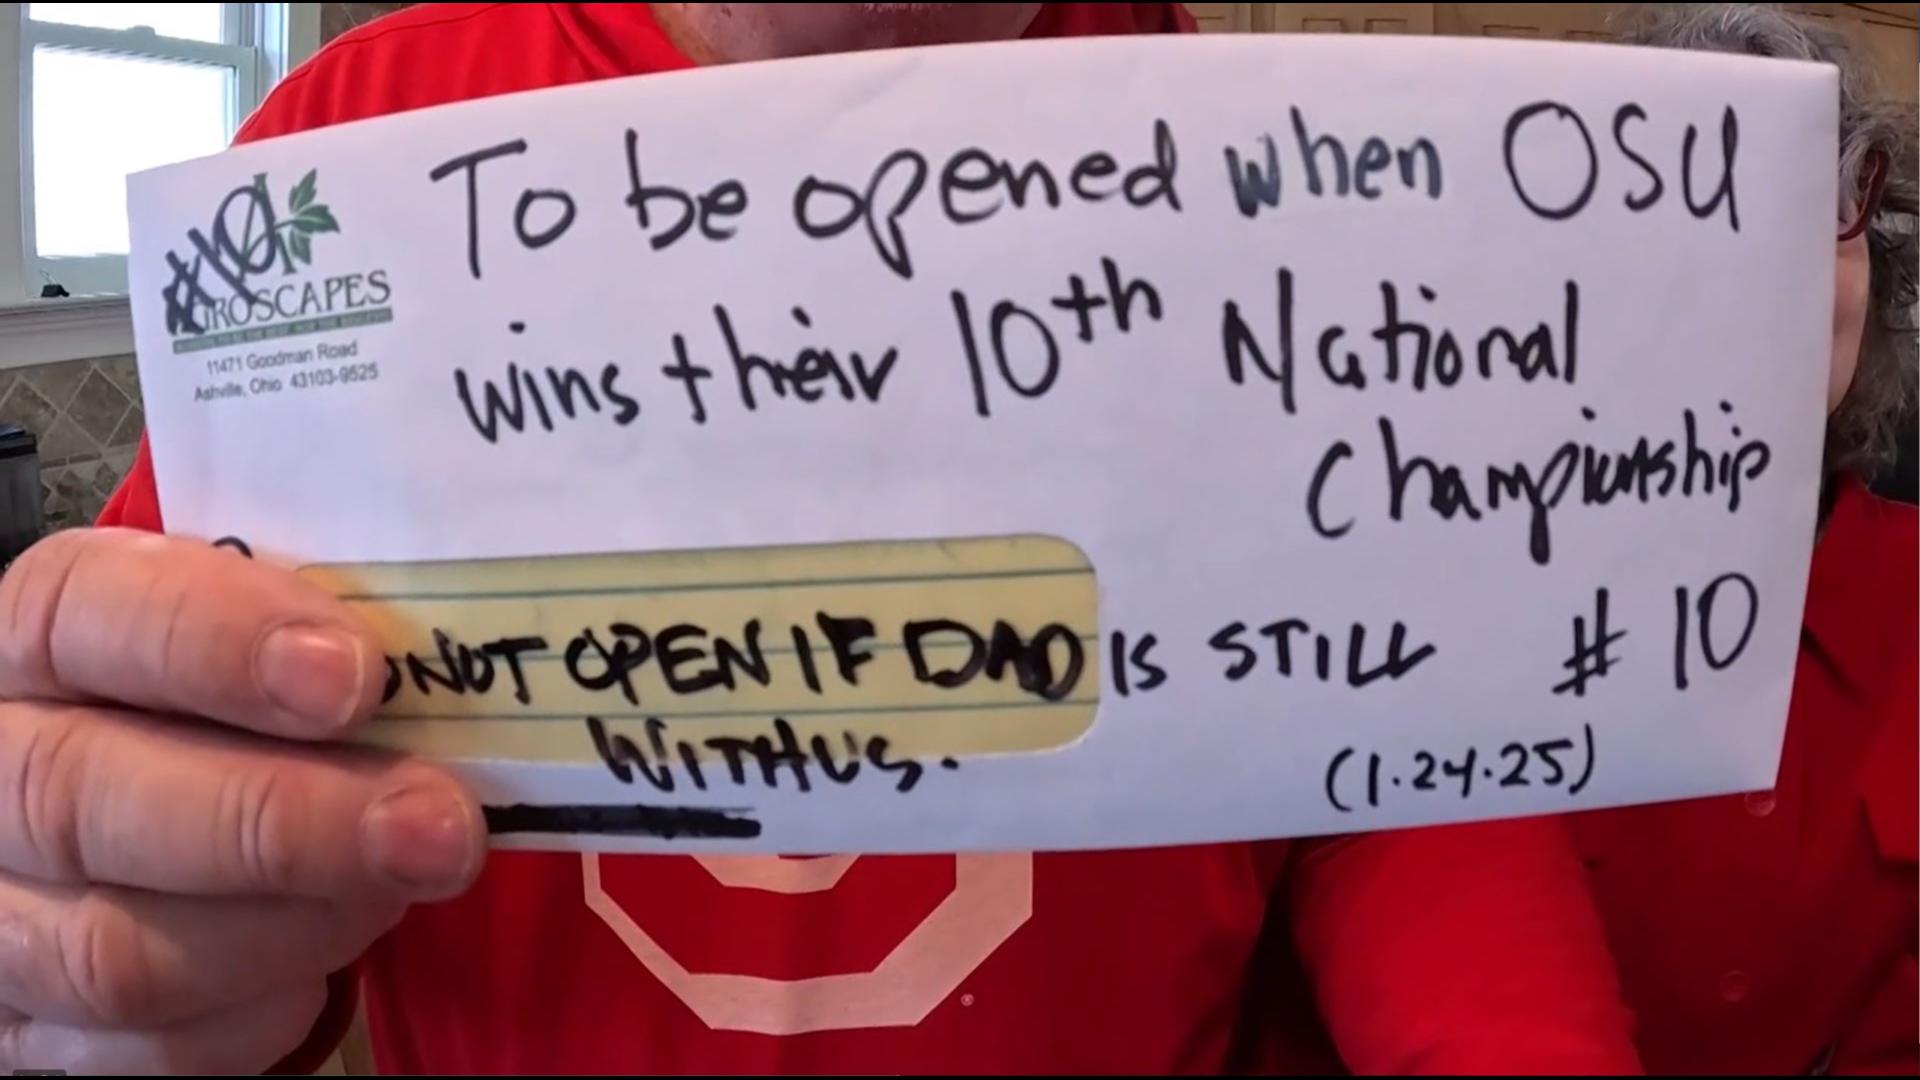 To be opened when OSU
wins their 10th National
Championship
GROSCAPES
11471 Goodman Road
Ashville, Ohio 43103-9525
NOT OPEN IF DAD IS STILL # 10
WITH US.
(1.24.25)
®